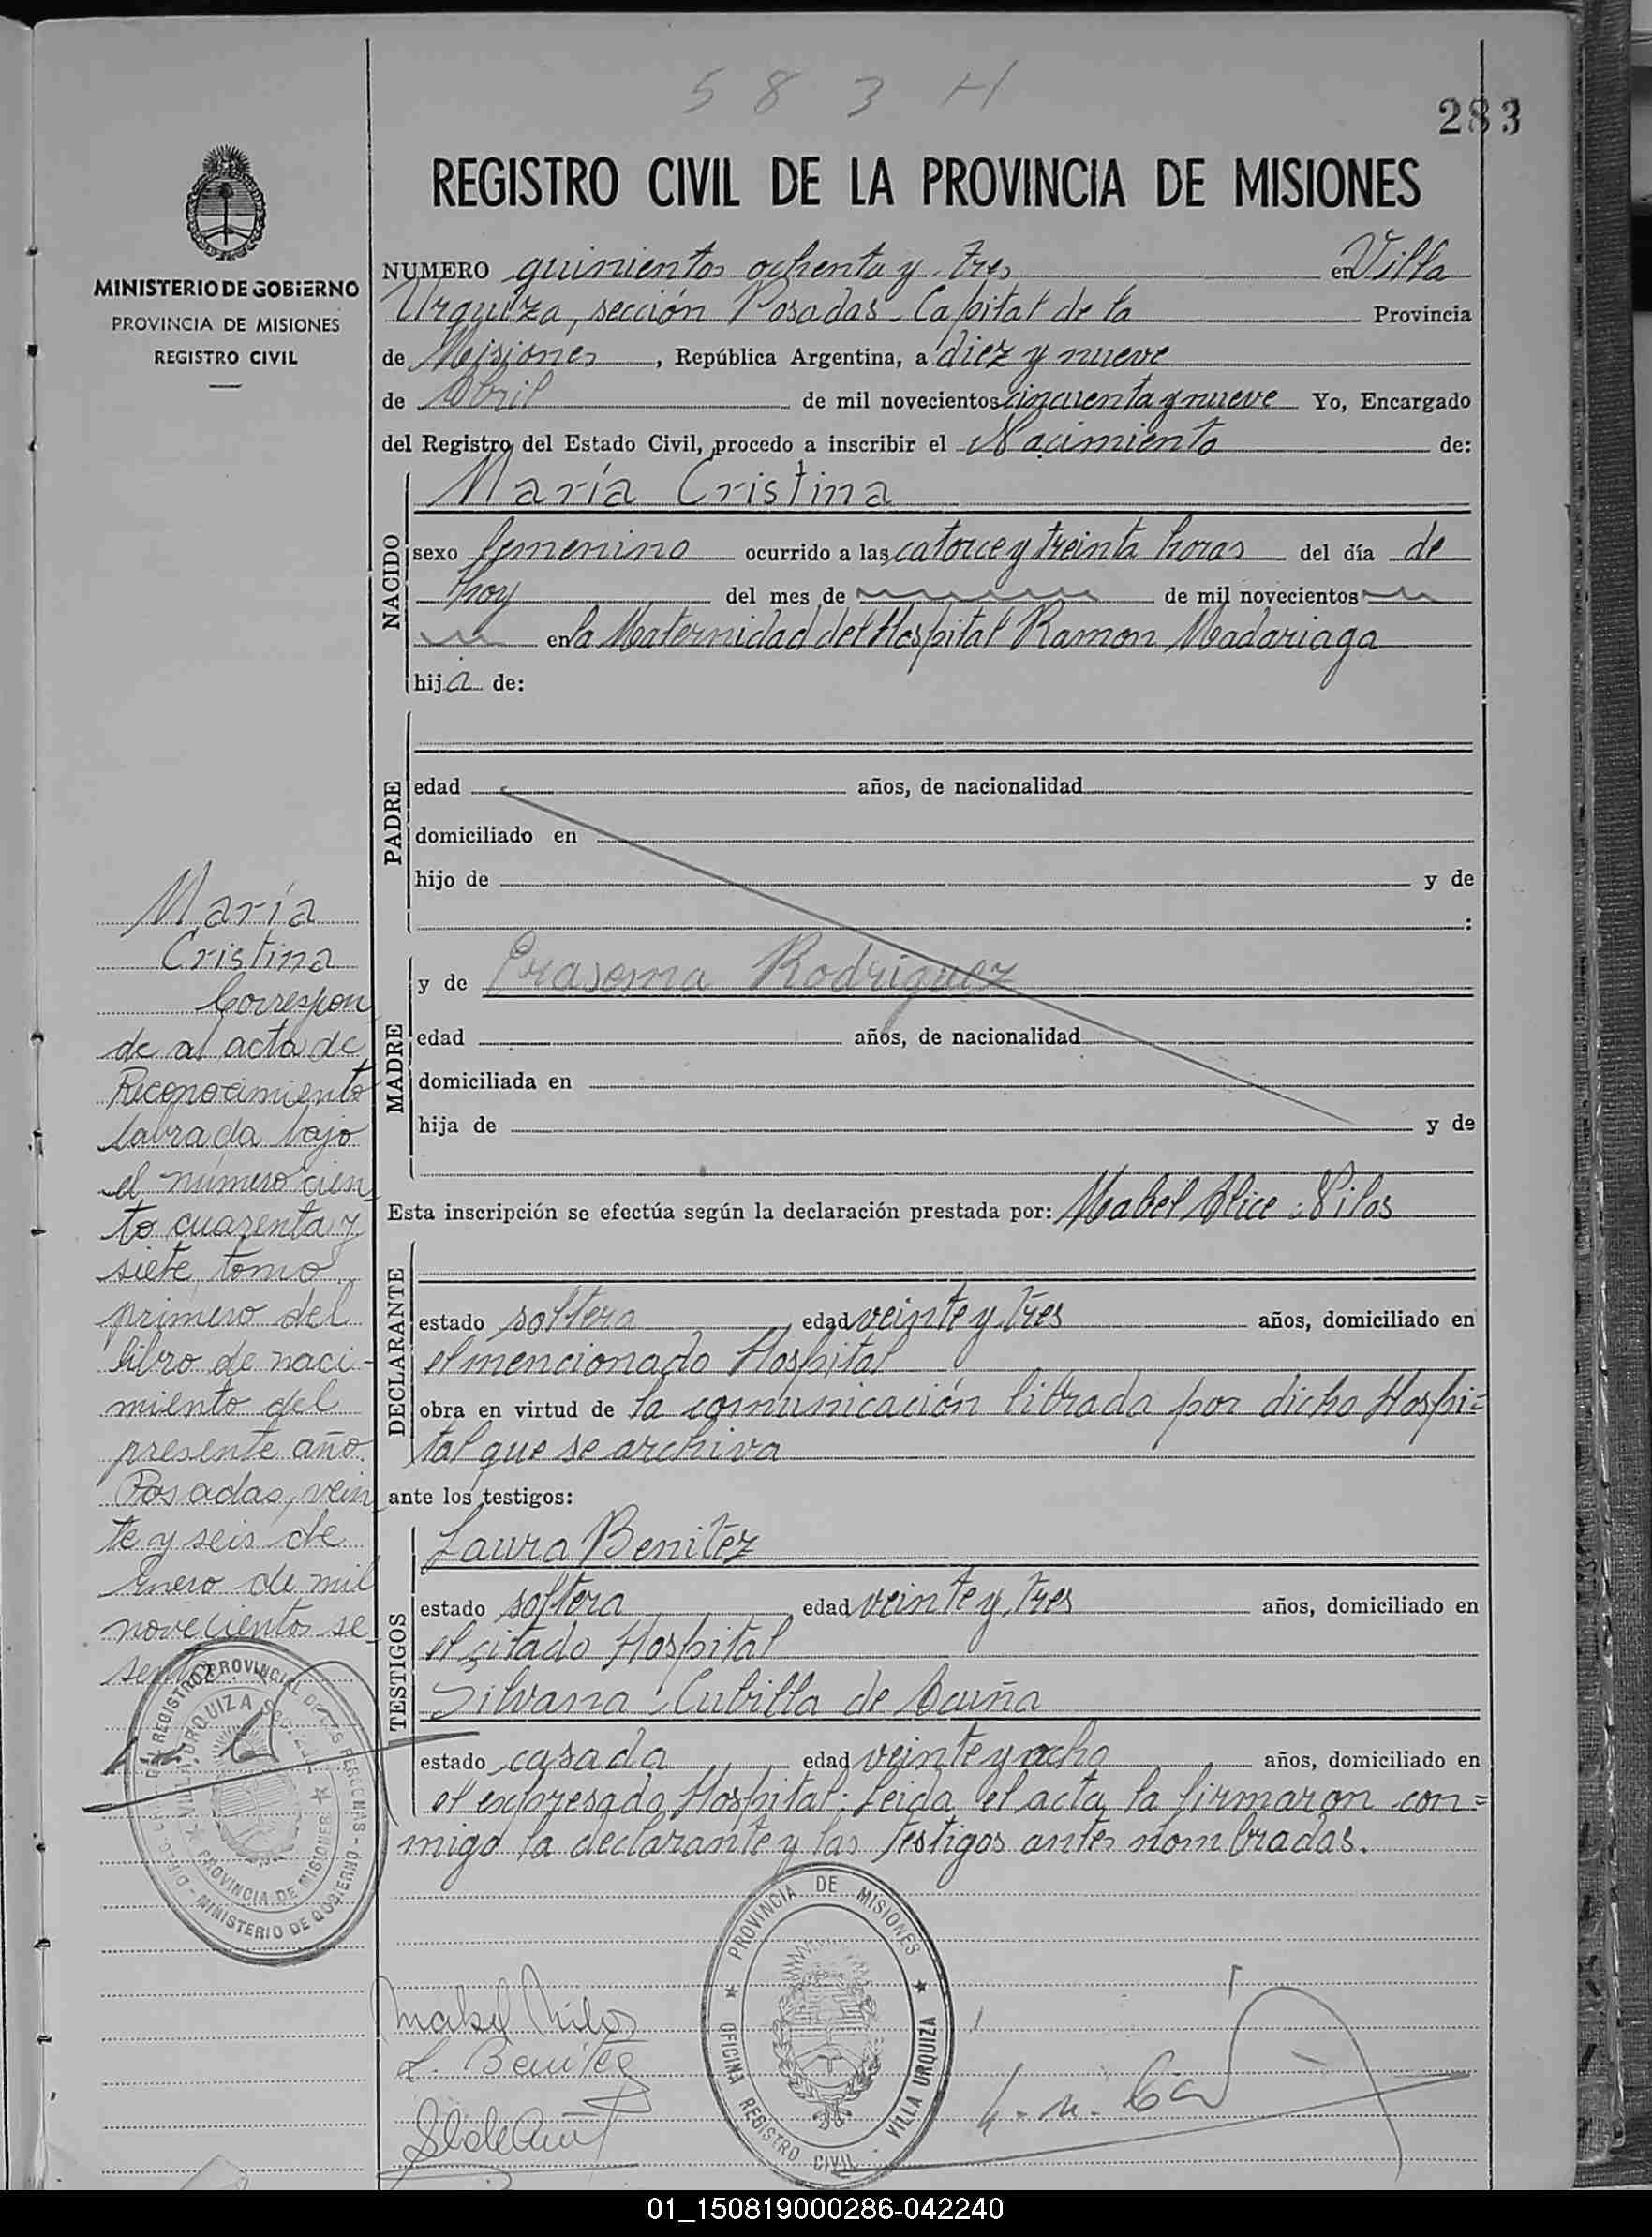 5 8 3 H
283
REGISTRO CIVIL DE LA PROVINCIA DE MISIONES
MINISTERIO DE GOBIERNO
PROVINCIA DE MISIONES
REGISTRO CIVIL
NUMERO quinientos ochenta y tres en Villa
Urquiza, sección Posadas - Capital de la Provincia
de Misiones, República Argentina, a diez y nueve
de Abril de mil novecientos cincuenta y nueve Yo, Encargado
del Registro del Estado Civil, procedo a inscribir el Nacimiento de:
NACIDO
María Cristina
sexo femenino ocurrido a las catorce y treinta horas del día de
hoy del mes de de mil novecientos
en la Maternidad del Hospital Ramon Madariaga
hija de:
PADRE
edad años, de nacionalidad
domiciliado en
hijo de y de
:
MADRE
y de Rodriguez
edad años, de nacionalidad
domiciliada en
hija de y de
Esta inscripción se efectúa según la declaración prestada por: Mabel Alice Nilos
DECLARANTE
estado soltera edad veinte y tres años, domiciliado en
el mencionado Hospital
obra en virtud de la comunicación librada por dicho Hospi=
tal que se archiva
ante los testigos:
TESTIGOS
Laura Benitez
estado soltera edad veinte y tres años, domiciliado en
el citado Hospital
Silvana Cubilla de Acuña
estado casada edad veinte y ocho años, domiciliado en
el expresado Hospital. Leida el acta la firmaron con=
migo la declarante y las testigos antes nombradas.
María
Cristina
Correspon
de al acta de
Reconocimiento
labrada bajo
el número cien
to cuarenta y
siete tomo
primero del
libro de naci-
miento del
presente año.
Posadas, vein
te y seis de
Enero de mil
novecientos se
senta
VILLA URQUIZA
PROVINCIA DE MISIONES
MINISTERIO DE GOBIERNO
Mabel Nilos
L. Benitez
PROVINCIA DE MISIONES
OFICINA REGISTRO CIVIL - VILLA URQUIZA
01_150819000286-042240